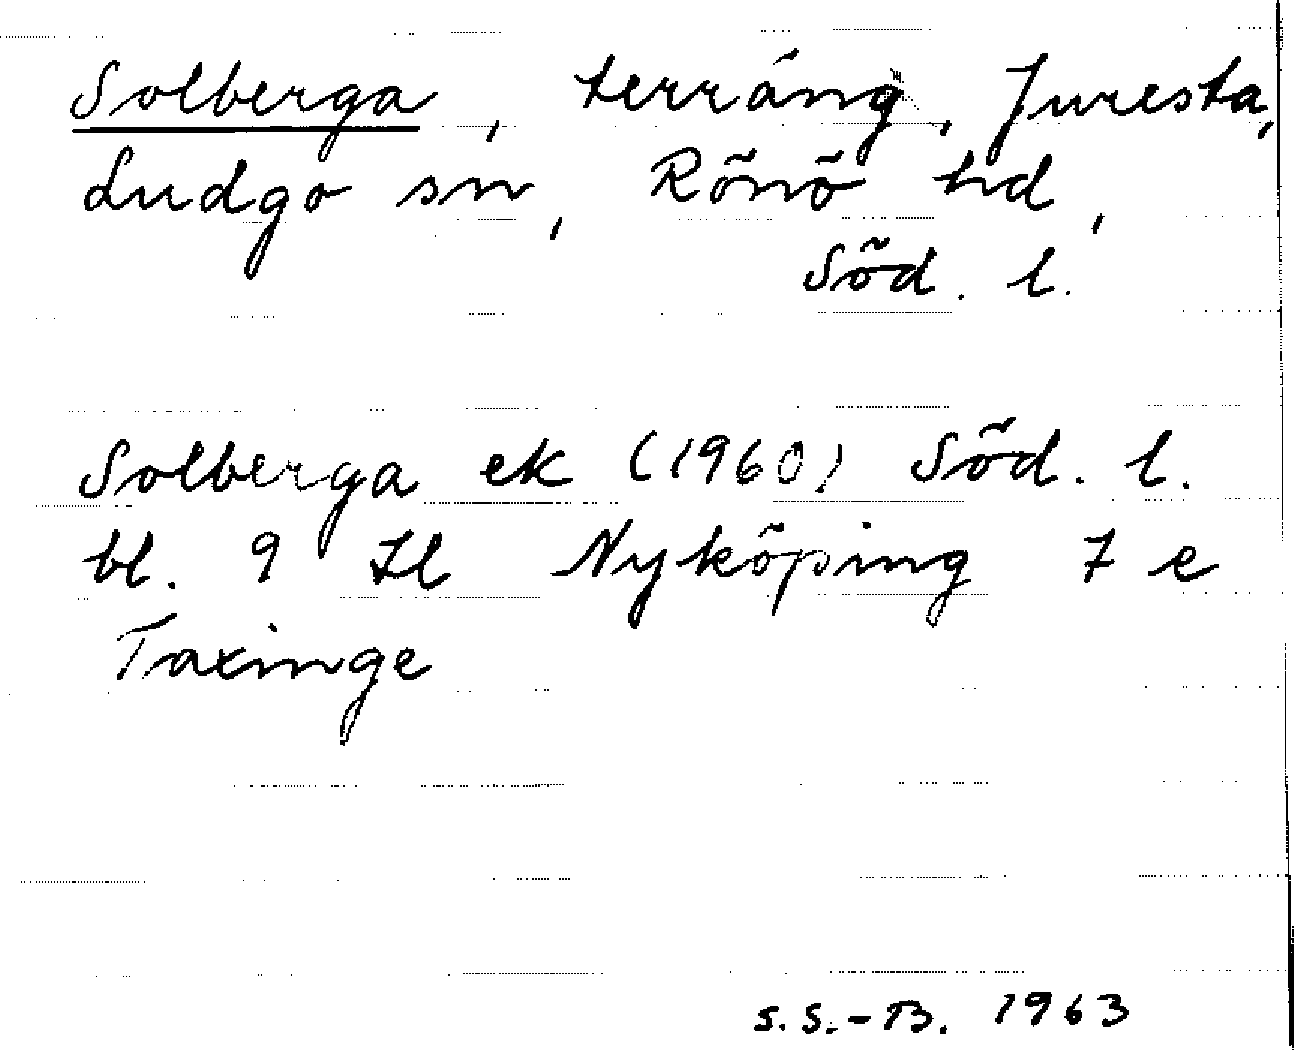 Solberga, terräng, Juresta,
Ludgo sn, Rönö hd,
Söd. l.
Solberga ek (1960) Söd. l.
bl. 9 Il Nyköping 7 e
Taxinge
S.S.-B. 1963